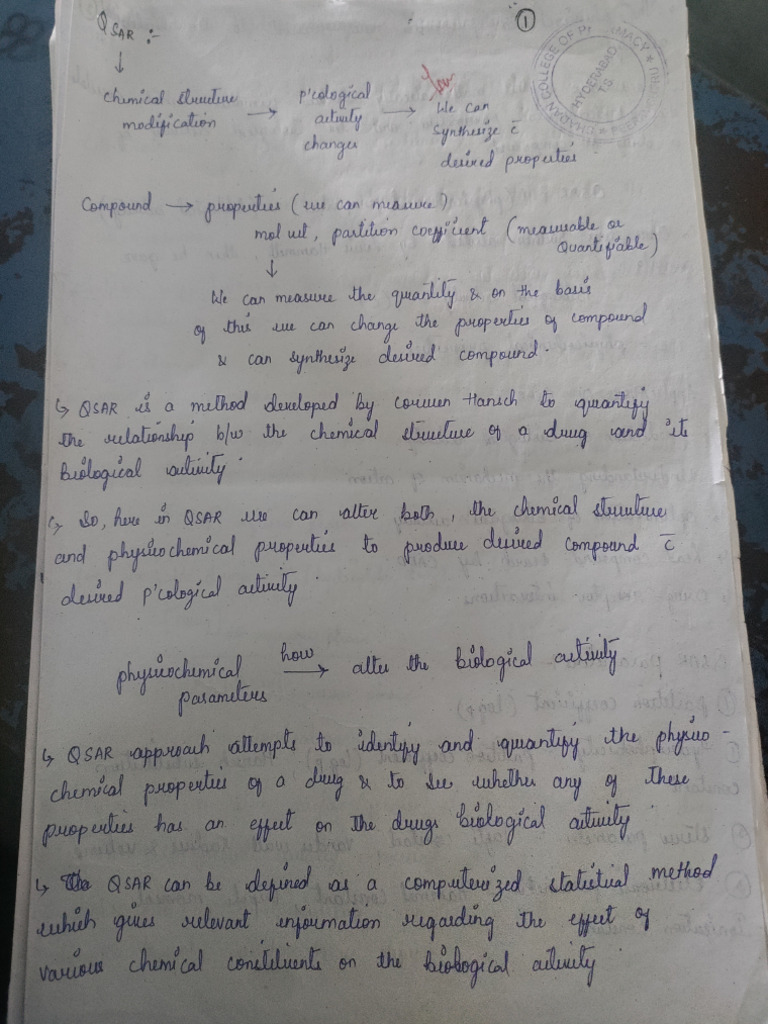 ①
QSAR :-
↓
chemical structure → p'cological → We can
modification activity synthesize c̄
changes desired properties
Compound → properties (we can measure)
mol wt, partition coefficient (measurable or
Quantifiable)
↓
We can measure the quantity & on the basis
of this we can change the properties of compound
& can synthesize desired compound.
↳ QSAR is a method developed by corwen Hansch to quantify
the relationship b/w the chemical structure of a drug and its
biological activity.
↳ So, here in QSAR we can alter both, the chemical structure
and physiochemical properties to produce desired compound c̄
desired p'cological activity.
physiochemical how → alter the biological activity
parameters
↳ QSAR approach attempts to identify and quantify the physio-
chemical properties of a drug & to see whether any of these
properties has an effect on the drugs biological activity.
↳ QSAR can be defined as a computerized statistical method
which gives relevant information regarding the effect of
various chemical constituents on the biological activity.
COLLEGE OF PHARMACY
HYDERABAD
T.S.